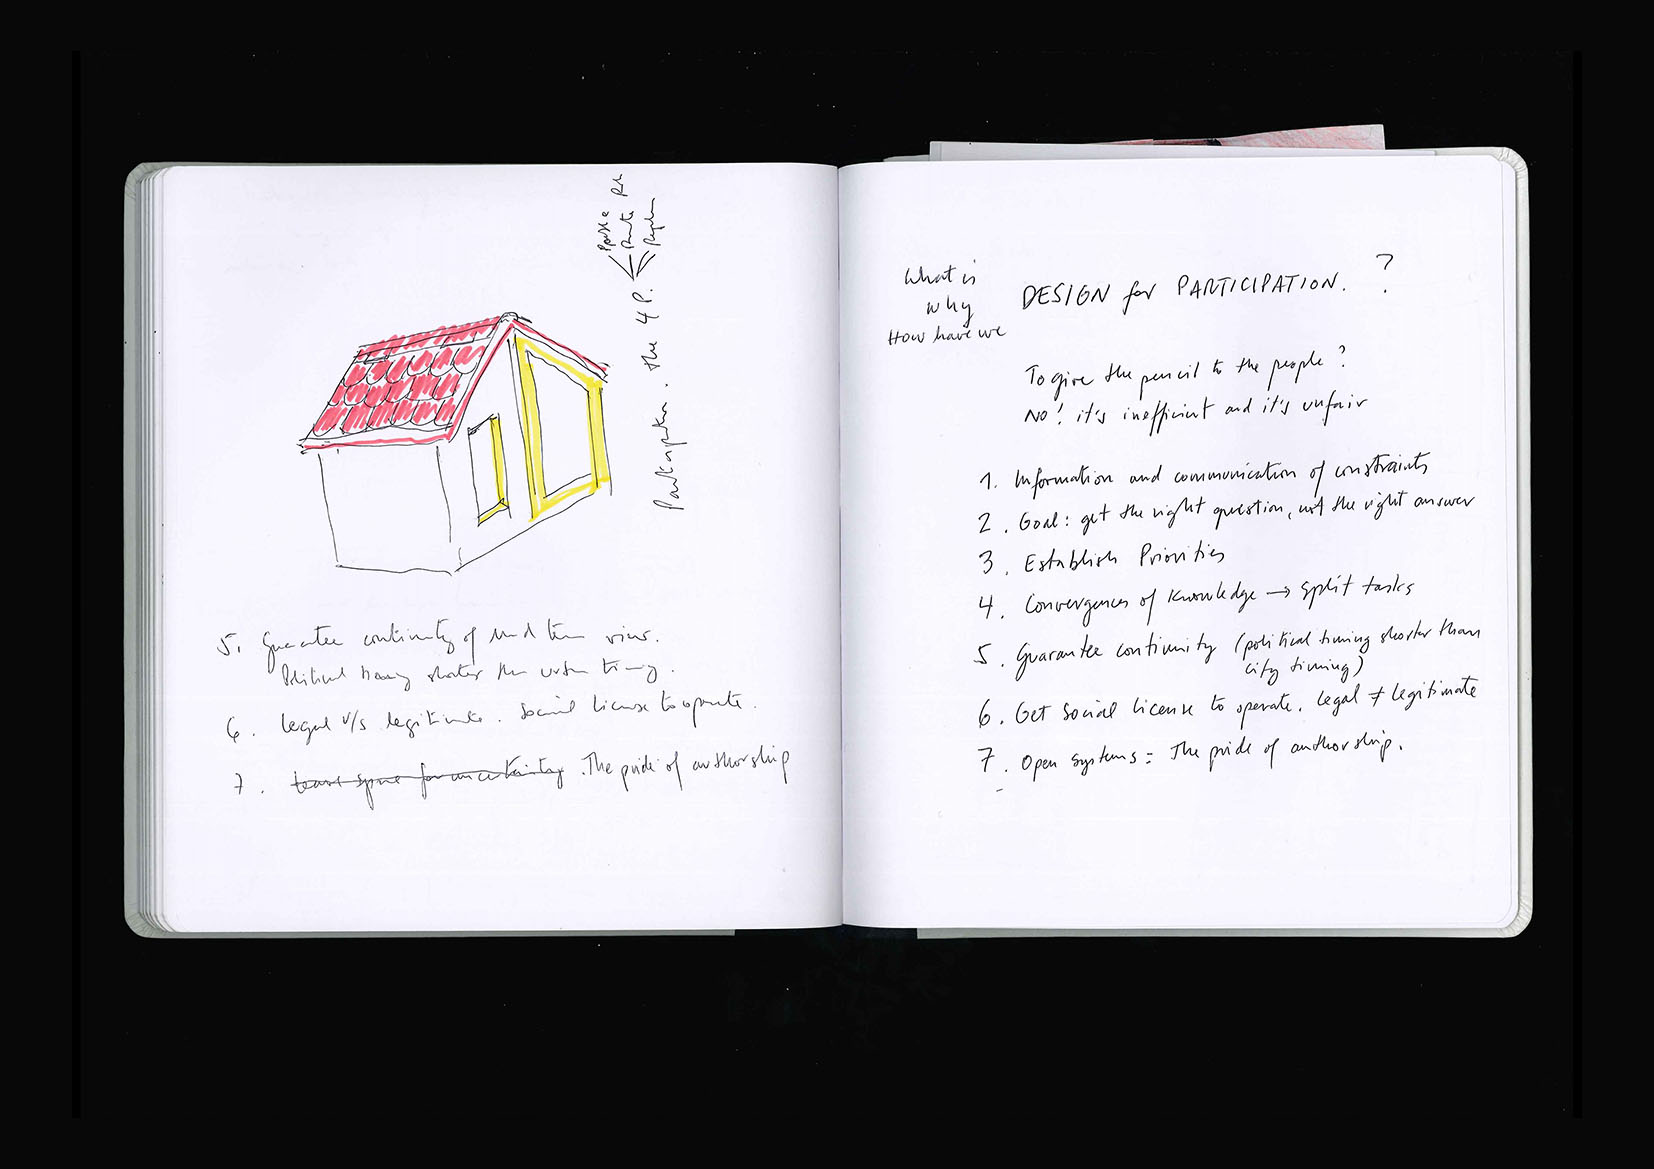 Participation. the 4 P.
Public
Private
People
5. Guarantee continuity of mid term view.
Political timing shorter than urban timing.
6. legal v/s legitimate. Social license to operate.
7. leave space for uncertainty. The pride of authorship
What is
why
How have we
DESIGN for PARTICIPATION. ?
To give the pencil to the people?
NO! it's inefficient and it's unfair
1. Information and communication of constraints
2. Goal: get the right question, not the right answer
3. Establish Priorities
4. Convergences of knowledge → split tasks
5. Guarantee continuity (political timing shorter than
city timing)
6. Get social license to operate. legal ≠ legitimate
7. Open systems: The pride of authorship.